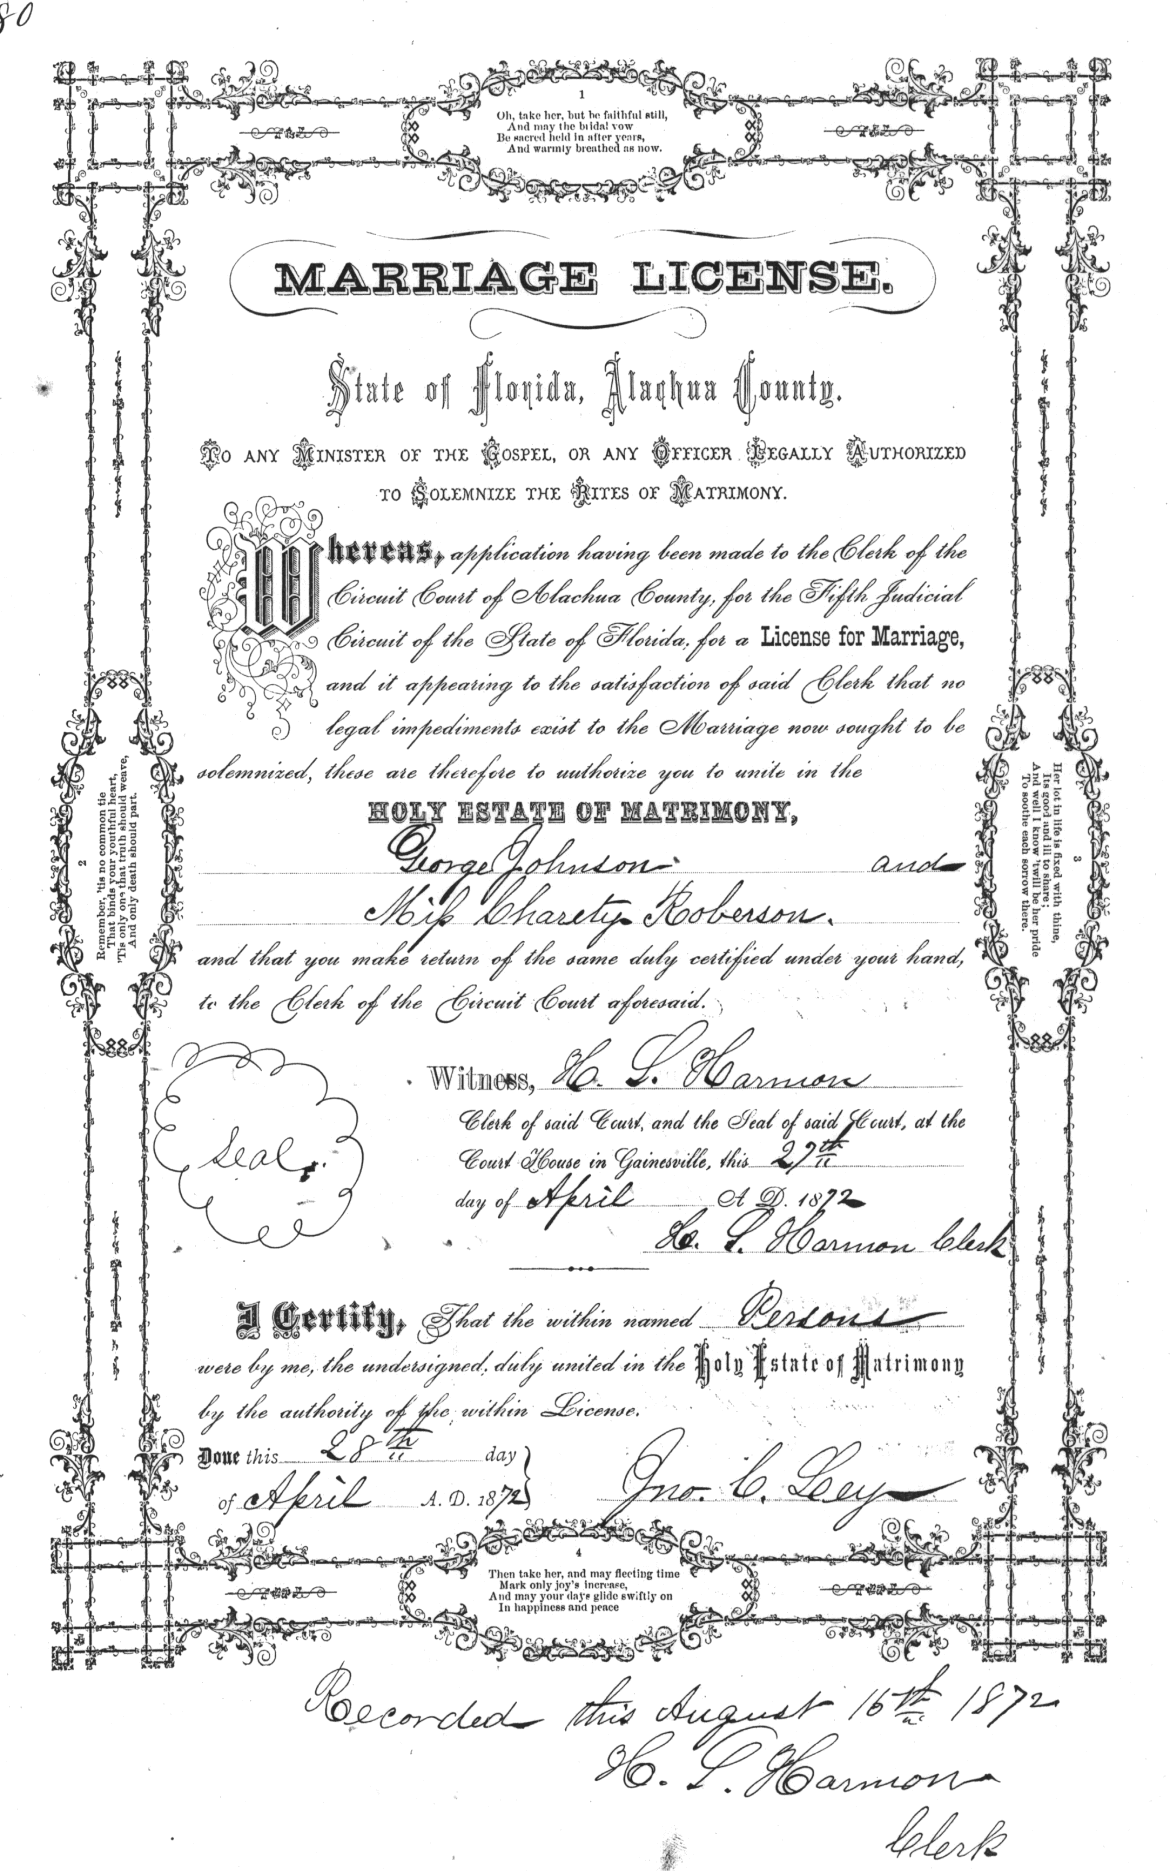 80
1
Oh, take her, but be faithful still,
And may the bridal vow
Be sacred held in after years,
And warmly breathed as now.
MARRIAGE LICENSE.
State of Florida, Alachua County.
TO ANY MINISTER OF THE GOSPEL, OR ANY OFFICER LEGALLY AUTHORIZED
TO SOLEMNIZE THE RITES OF MATRIMONY.
Whereas, application having been made to the Clerk of the
Circuit Court of Alachua County, for the Fifth Judicial
Circuit of the State of Florida, for a License for Marriage,
and it appearing to the satisfaction of said Clerk that no
legal impediments exist to the Marriage now sought to be
solemnized, these are therefore to authorize you to unite in the
HOLY ESTATE OF MATRIMONY,
George Johnson and
Miss Charety Roberson.
and that you make return of the same duly certified under your hand,
to the Clerk of the Circuit Court aforesaid.
2
Remember, 'tis no common tie
That binds your youthful heart,
'Tis only one that truth should weave,
And only death should part.
3
Her lot in life is fixed with thine,
Its good and ill to share;
And well I know 'twill be her pride
To soothe each sorrow there.
Seal
Witness, H. S. Harmon
Clerk of said Court, and the Seal of said Court, at the
Court House in Gainesville, this 27th
day of April A. D. 1872
H. S. Harmon Clerk
I Certify, That the within named Persons
were by me, the undersigned, duly united in the Holy Estate of Matrimony
by the authority of the within License.
Done this 28th day
of April A. D. 1872
Jno. C. Ley
4
Then take her, and may fleeting time
Mark only joy's increase,
And may your days glide swiftly on
In happiness and peace
Recorded this August 15th 1872
H. S. Harmon
Clerk